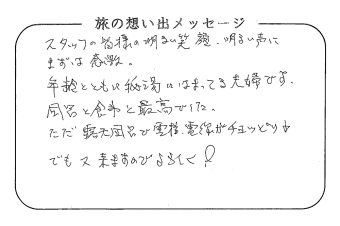 旅の想い出メッセージ
スタッフの皆様の明るい笑顔、明るい声に
まずは感激。
年齢とともに秘湯にはまってる夫婦です。
風呂と食事と最高でした。
ただ露天風呂で電柱、電線がチョッと
でも又来ますのでよろしく!